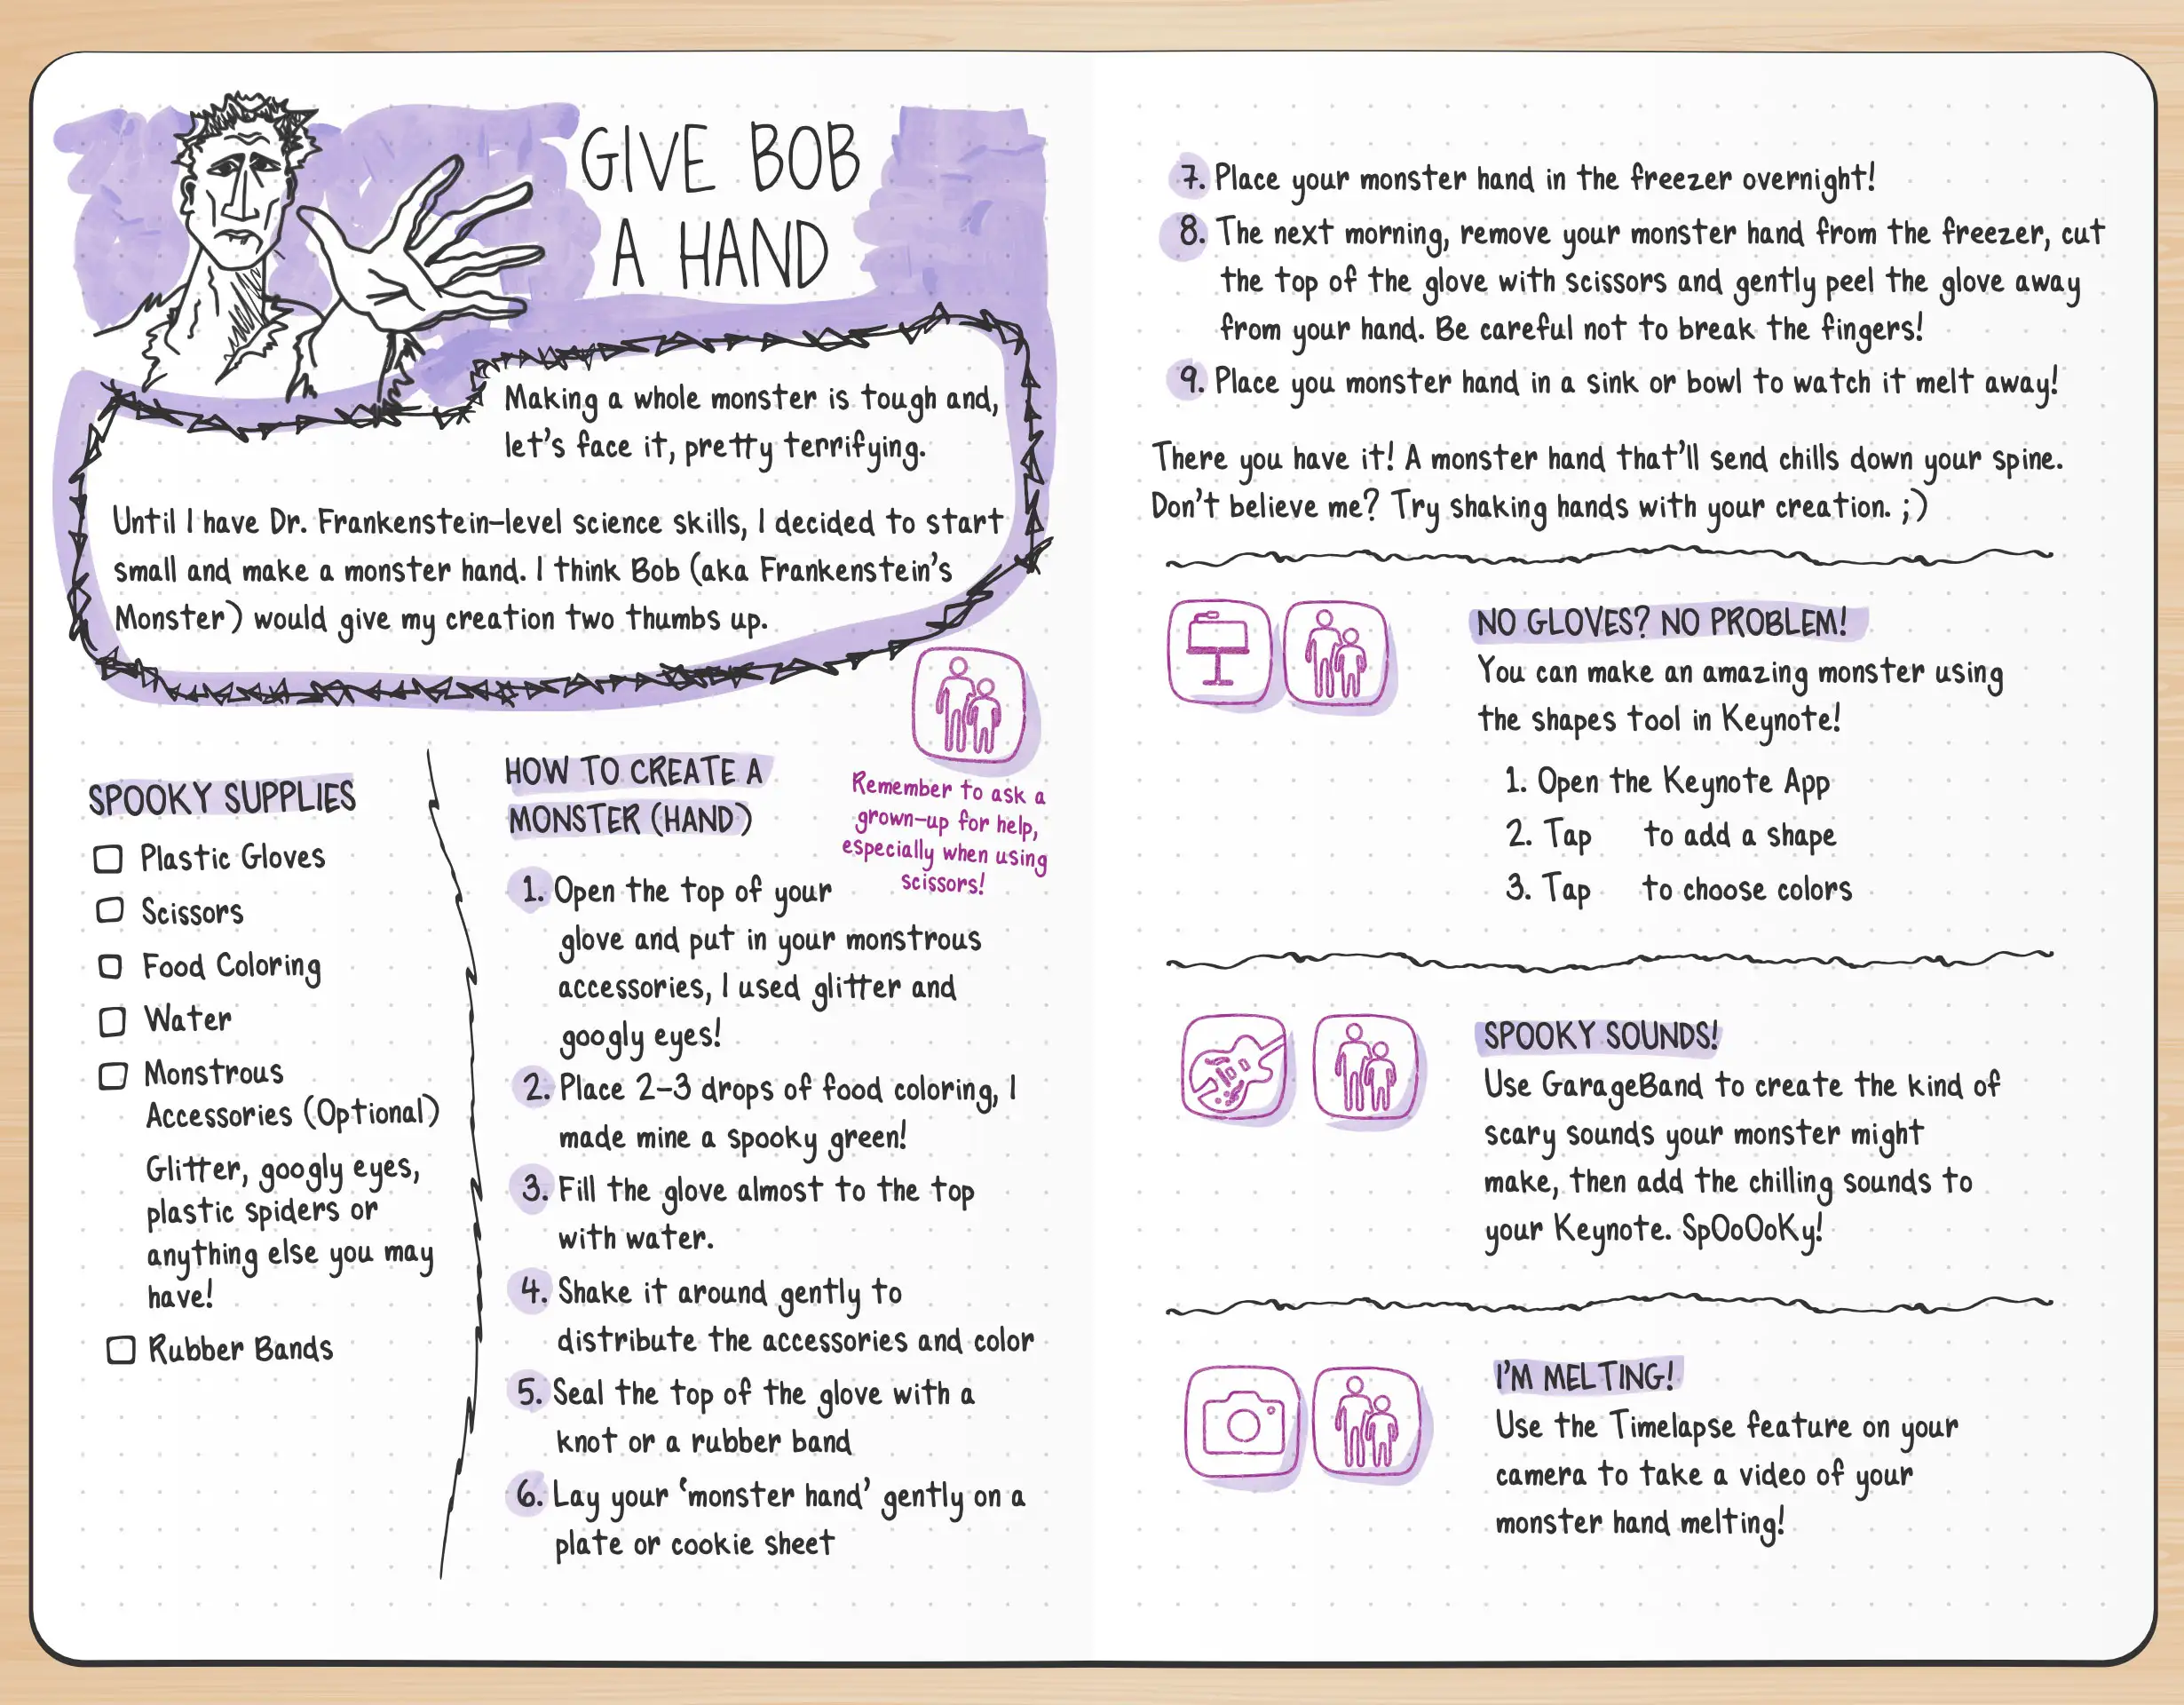 GIVE BOB
A HAND
Making a whole monster is tough and,
let's face it, pretty terrifying.
Until I have Dr. Frankenstein-level science skills, I decided to start
small and make a monster hand. I think Bob (aka Frankenstein's
Monster) would give my creation two thumbs up.
SPOOKY SUPPLIES
Plastic Gloves
Scissors
Food Coloring
Water
Monstrous
Accessories (Optional)
Glitter, googly eyes,
plastic spiders or
anything else you may
have!
Rubber Bands
HOW TO CREATE A
MONSTER (HAND)
Remember to ask a
grown-up for help,
especially when using
scissors!
1. Open the top of your
glove and put in your monstrous
accessories, I used glitter and
googly eyes!
2. Place 2-3 drops of food coloring, I
made mine a spooky green!
3. Fill the glove almost to the top
with water.
4. Shake it around gently to
distribute the accessories and color
5. Seal the top of the glove with a
knot or a rubber band
6. Lay your 'monster hand' gently on a
plate or cookie sheet
7. Place your monster hand in the freezer overnight!
8. The next morning, remove your monster hand from the freezer, cut
the top of the glove with scissors and gently peel the glove away
from your hand. Be careful not to break the fingers!
9. Place you monster hand in a sink or bowl to watch it melt away!
There you have it! A monster hand that'll send chills down your spine.
Don't believe me? Try shaking hands with your creation. ;)
NO GLOVES? NO PROBLEM!
You can make an amazing monster using
the shapes tool in Keynote!
1. Open the Keynote App
2. Tap to add a shape
3. Tap to choose colors
SPOOKY SOUNDS!
Use GarageBand to create the kind of
scary sounds your monster might
make, then add the chilling sounds to
your Keynote. SpOoOoKy!
I'M MELTING!
Use the Timelapse feature on your
camera to take a video of your
monster hand melting!